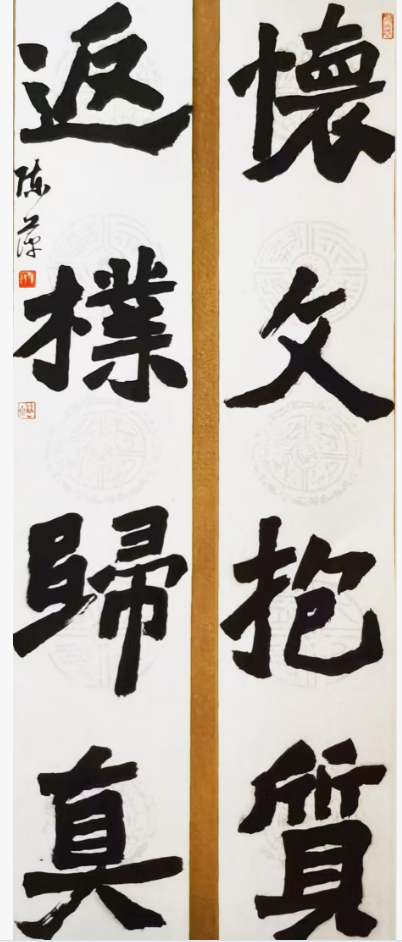 懷文抱質
返樸歸真
陳萍